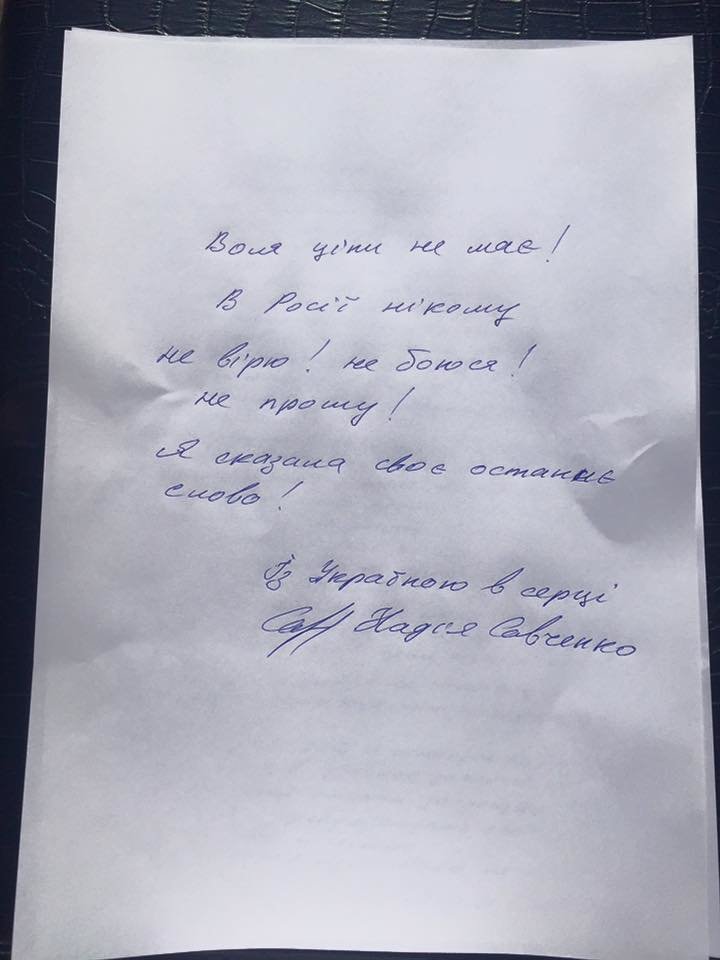 Воля ціни не має!
В Росії нікому
не вірю! не боюся!
не прошу!
Я сказала своє останнє
слово!
Із Україною в серці
Надія Савченко